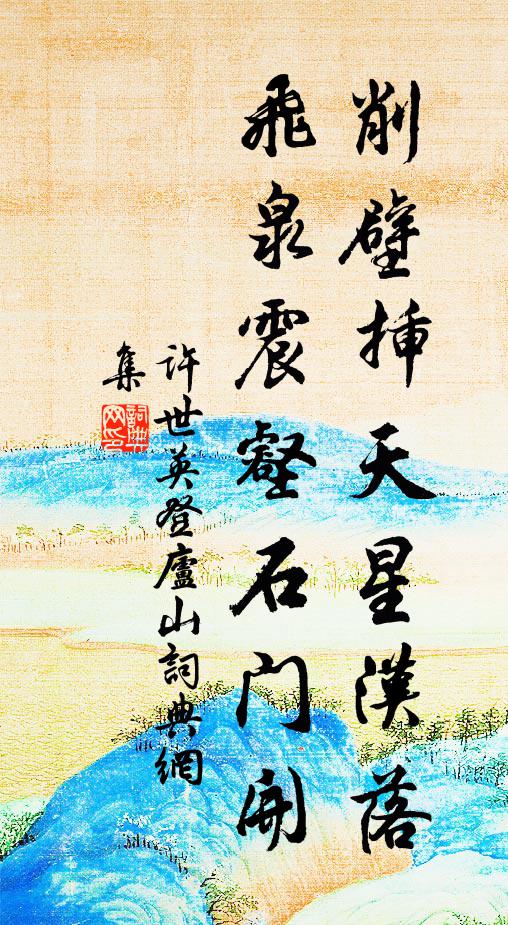 削壁挿天星漢落
飛泉震壑石门開
許世英登廬山詞典網
集
詞典
网印